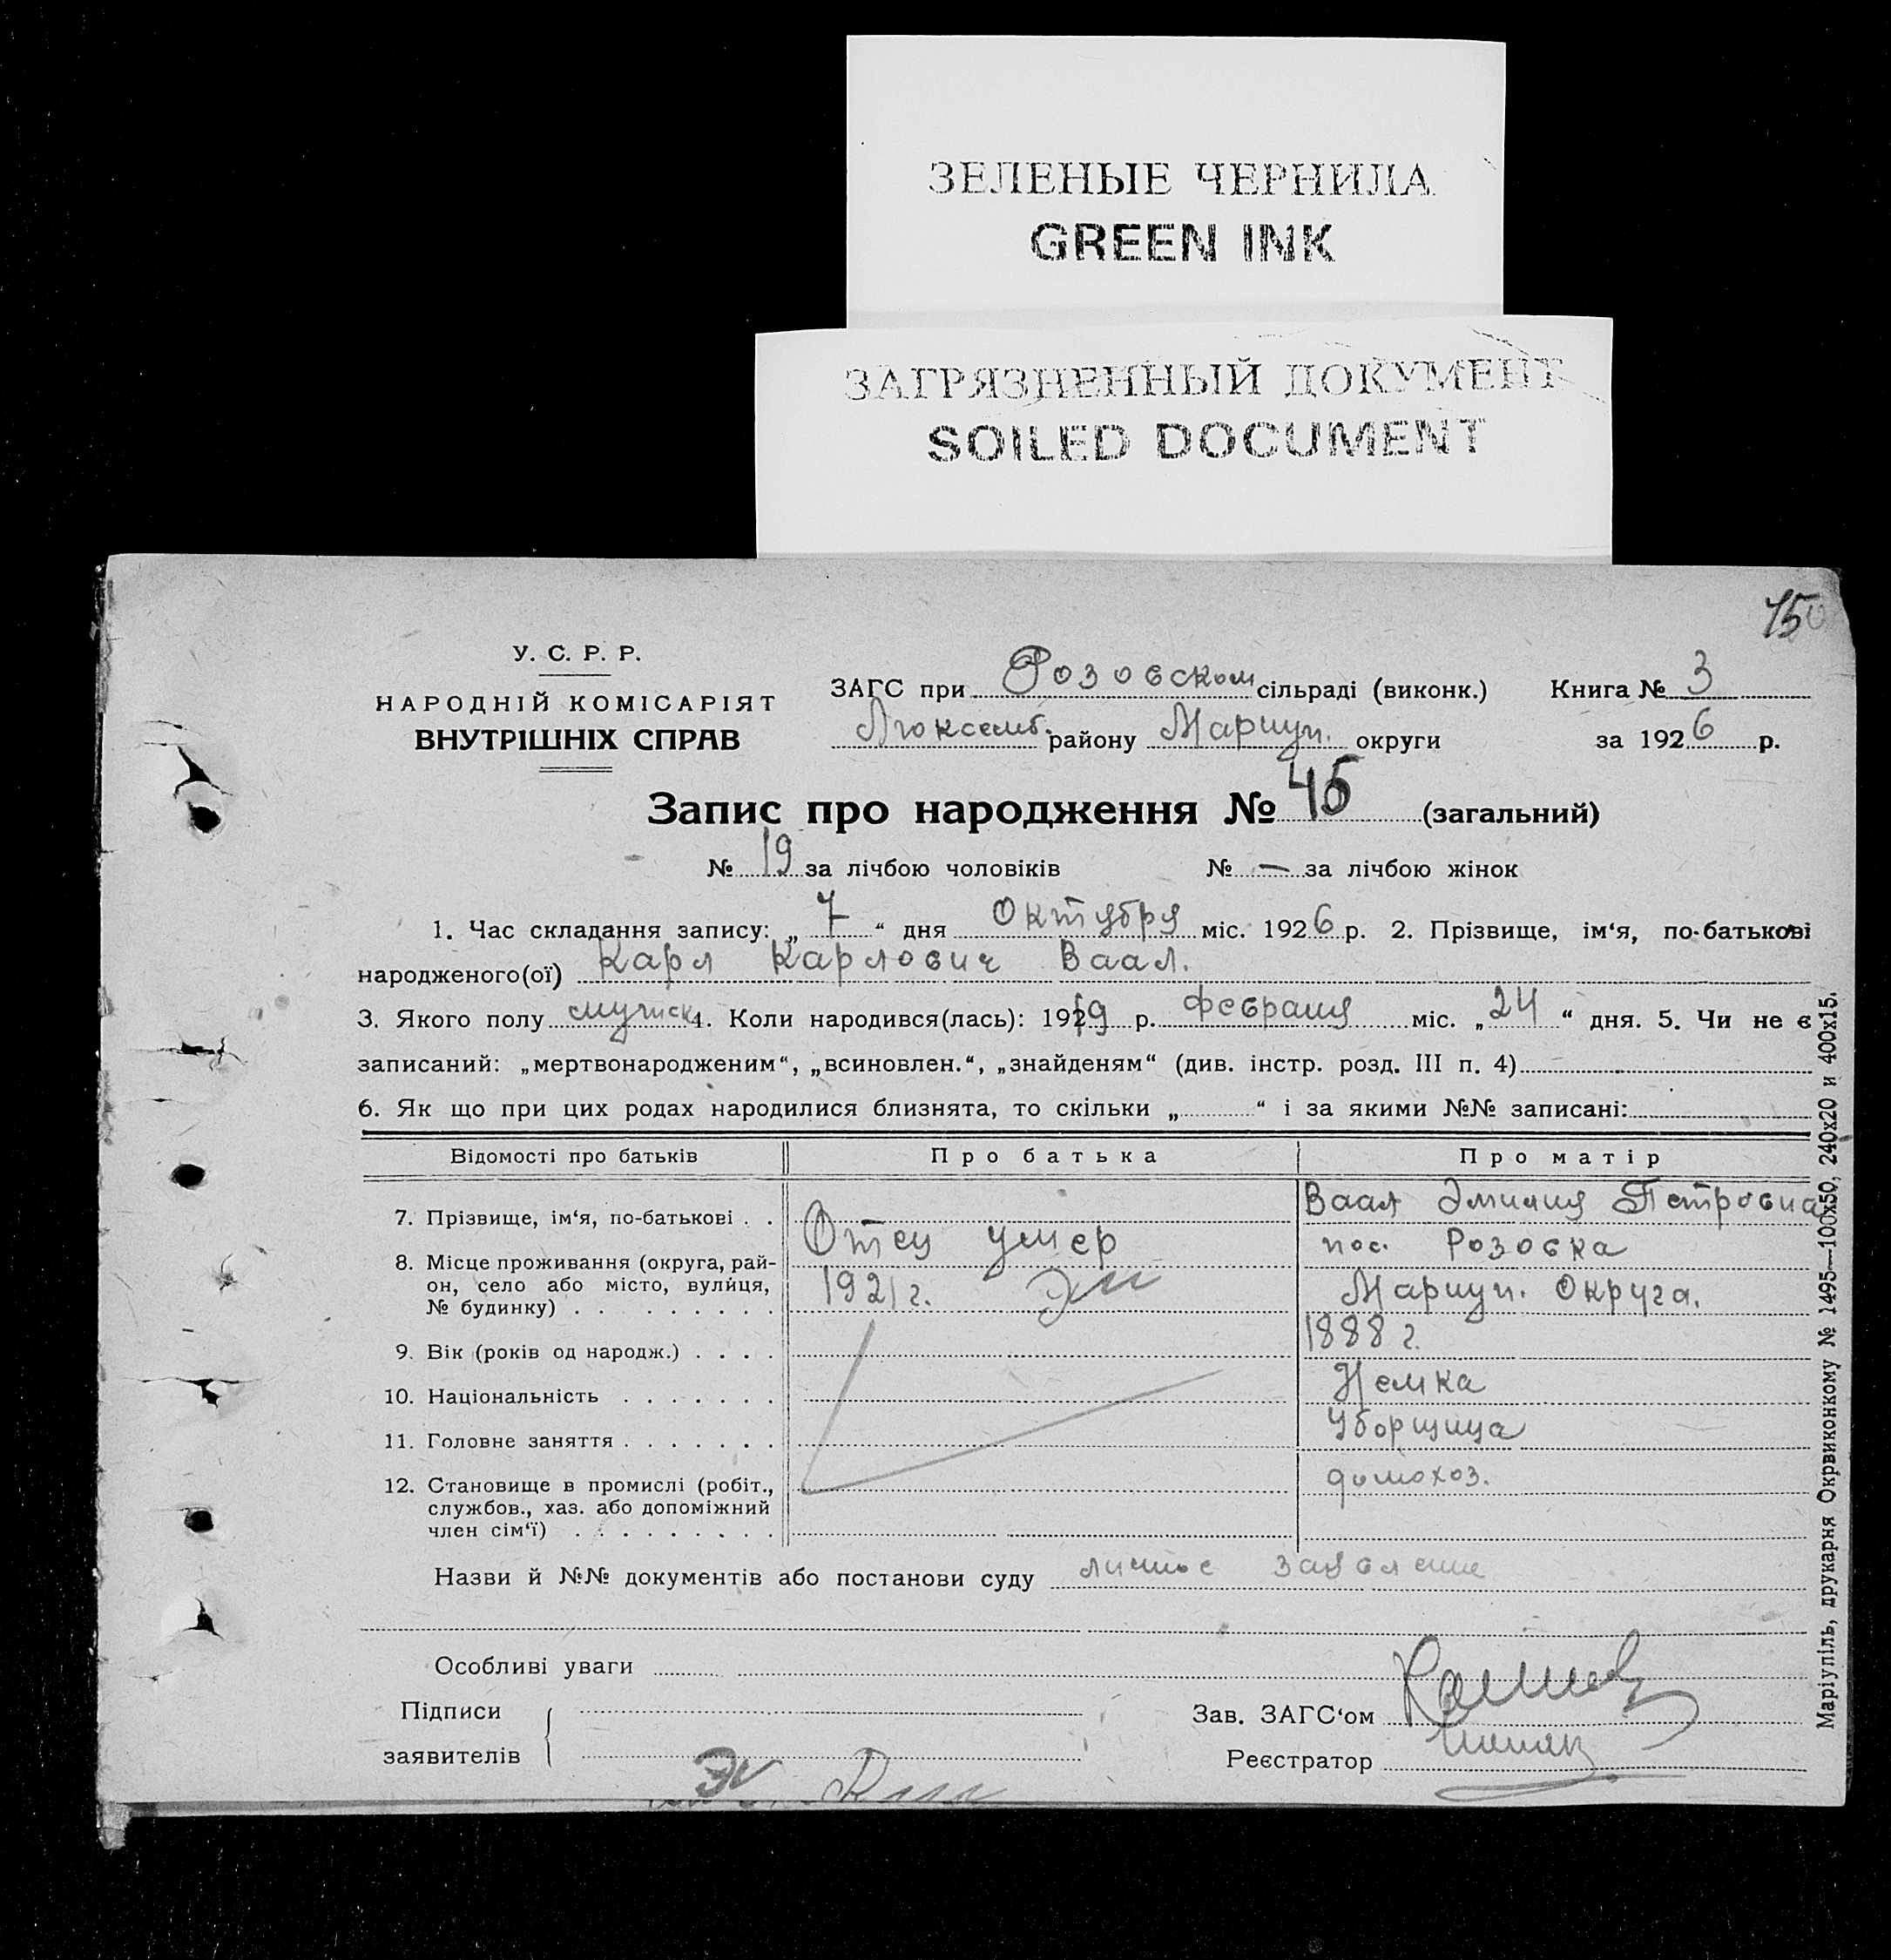 ЗЕЛЕНЫЕ ЧЕРНИЛА
GREEN INK
ЗАГРЯЗНЕННЫЙ ДОКУМЕНТ
SOILED DOCUMENT
У. С. Р. Р.
НАРОДНІЙ КОМІСАРІЯТ
ВНУТРІШНІХ СПРАВ
ЗАГС при Розовском сільраді (виконк.) Книга № 3
Люксемб. району Мариуп. округи за 1926 р.
Запис про народження № 45 (загальний)
№ 19 за лічбою чоловіків № — за лічбою жінок
1. Час складання запису: „ 7 “ дня Октября міс. 1926 р. 2. Прізвище, ім‘я, по-батькові
народженого(ої) Карл Карлович Ваал.
3. Якого полу мужск 4. Коли народився(лась): 1919 р. февраля міс. „ 24 “ дня. 5. Чи не є
записаний: „мертвонародженим“, „всиновлен.“, „знайденям“ (див. інстр. розд. III п. 4)
6. Як що при цих родах народилися близнята, то скільки „ “ і за якими №№ записані:
Відомості про батьків Про батька Про матір
7. Прізвище, ім‘я, по-батькові . . Ваал Эмилия Петровна
Отец умер пос. Розовка
8. Місце проживання (округа, рай-
он, село або місто, вулиця, 1921 г. Мариуп. Округа.
№ будинку) . . . . . . . . .
9. Вік (років од народж.) . . . . 1888 г.
10. Національність . . . . . . . Немка
11. Головне заняття . . . . . . . Уборщица
12. Становище в промислі (робіт., домохоз.
службов., хаз. або допоміжний
член сім‘ї) . . . . . . . . .
Назви й №№ документів або постанови суду личное заявление
Особливі уваги
Підписи
заявителів
Зав. ЗАГС‘ом
Реєстратор
Маріупіль, друкарня Окрвиконкому № 1495—100х50, 240х20 и 400х15.